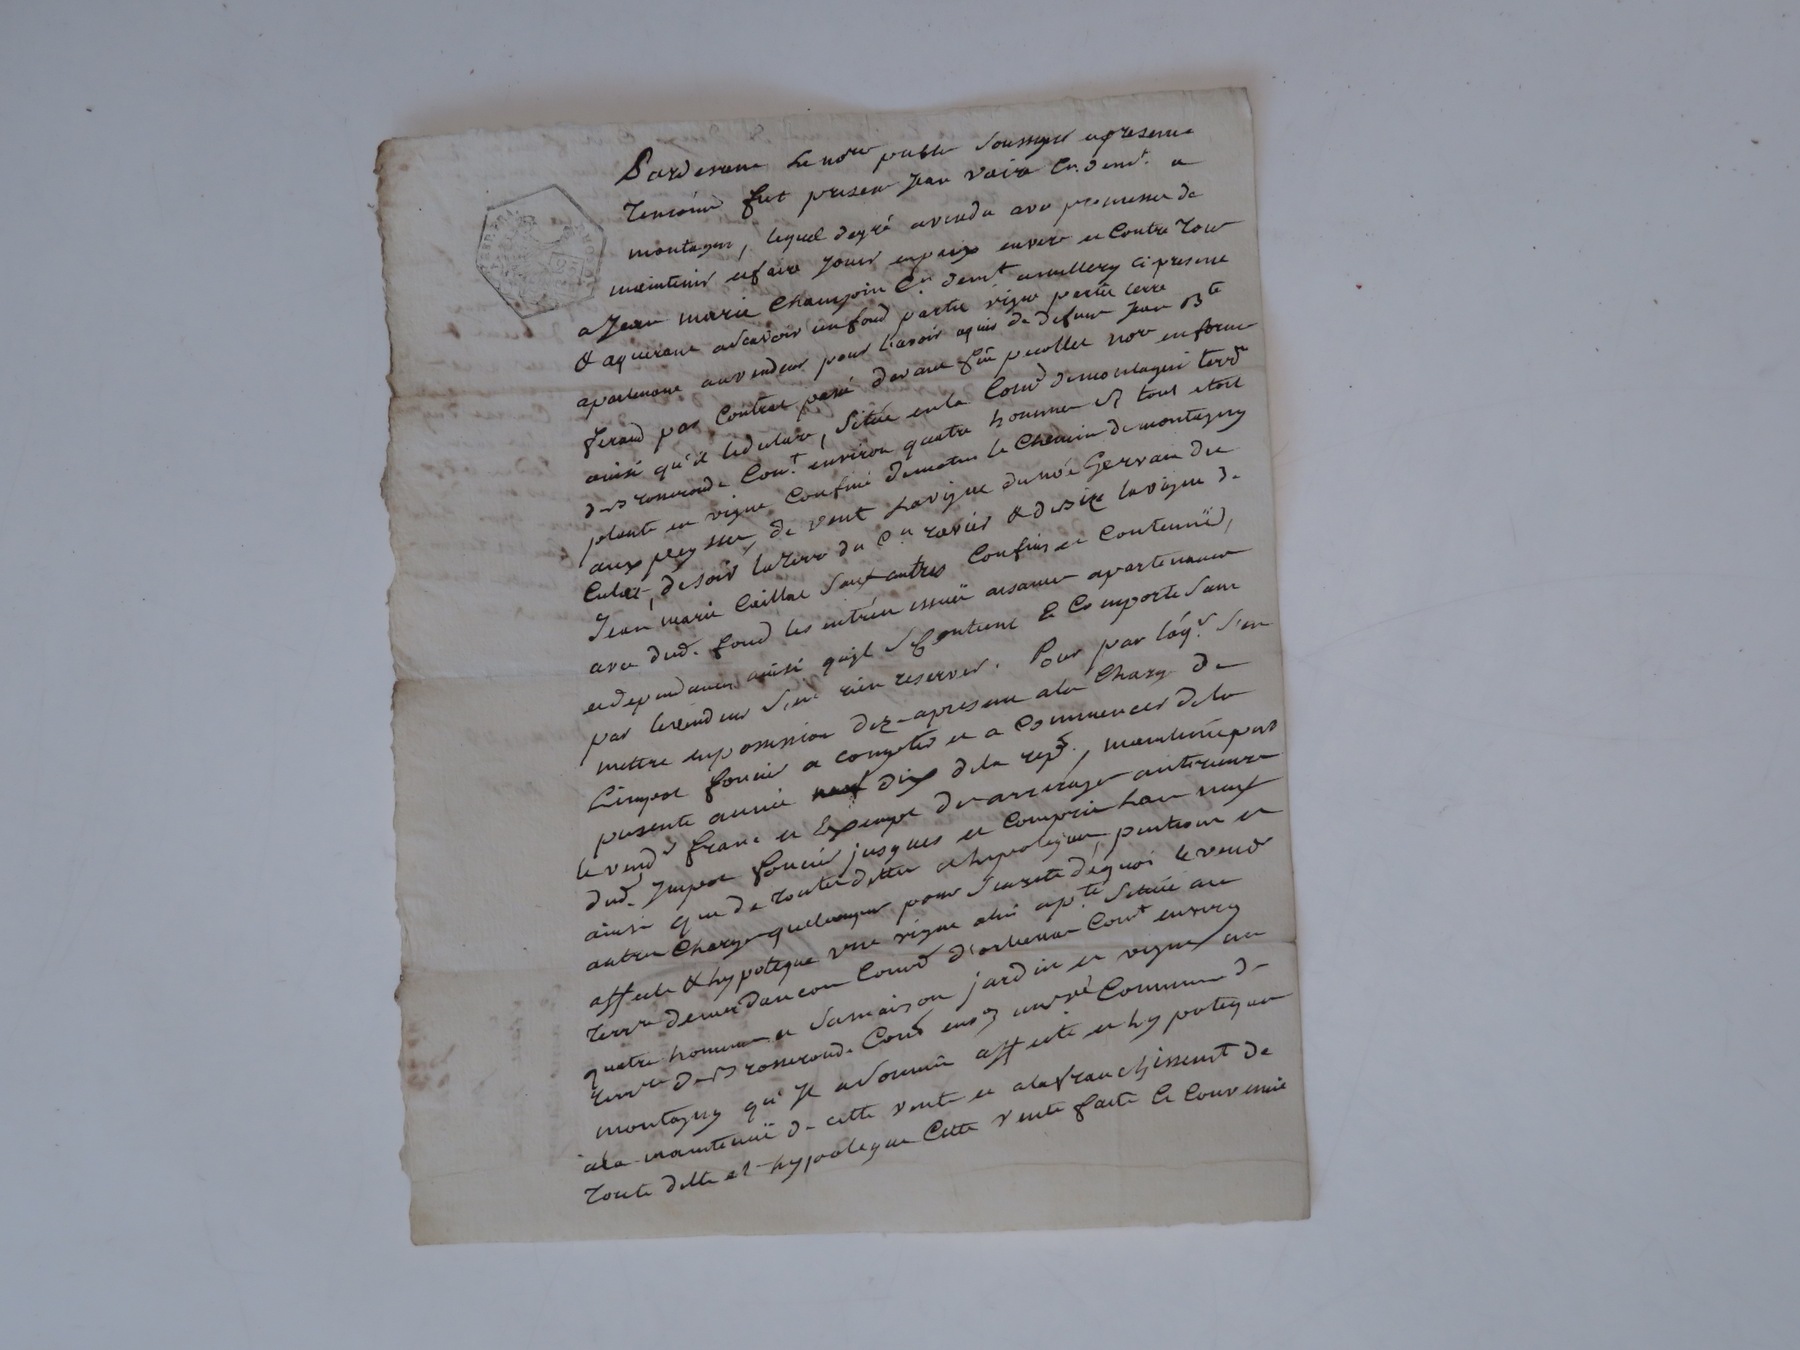 Pardevant Le no.re public soussigné apresens
temoins fut present Jean voira C.n dem.t a
montagny, lequel degré avendu avec promesse de
maintenir etfaire jouir enpaix envers et Contre tous
a Jean marie Champin C.n dem.t amillery ci present
& aquerant asavoir unfond partie vigne partie terre
apartenant auvendeur pour l'avoir aquis de defunt Jean B.te
feraud par Contrat passé devant feu pecollet no.re enforme
ainsi qu'il ledeclare, Situé enla Com.e demontagni terr.e
des rosseronde Con.t environ quatre hommée si tout etoit
planté en vigne Confiné dematin le Chemin de montagny
aux, de vent Lavigne Gervais du
Culat, desoir laterre du C.n ravier & debize lavigne de
Jean marie Caillat Sauf autres Confins et Contenuë,
avec dud. fond les entrées issuës aisances apartenances
etdependances, ainsi quil se Contient & Comporte Sans
par levendeur S'en rien reserver. Pour par l'aq.r S'en
mettre enpossession dez-apresent ala Charge de
L'impot foncier a compter et a Commencer de la
presente année dix dela rep.e, maintenuë par
le vend.r franc et Exempt des arrerages anterieurs
dud. Impot foncier jusques et Compris Lan neuf
ainsi que de toutes dettes et hypoteques, pentions et
autres Charges quelconques pour Sureté dequoi le vend.r
affecte & hypoteque une vigne alui ap.te Située au
Terr.re Com.e d'orlienas Con.t environ
quatre hommées et Samaison jardin et vigne au
Terr.re des rosseronde Con.t Commune de
montagny qu'Il a affecté et hypotequé
àla maintenuë de cette vente et alafranchissem.t de
toute dette et hypoteque Cette vente faite & Convenuë